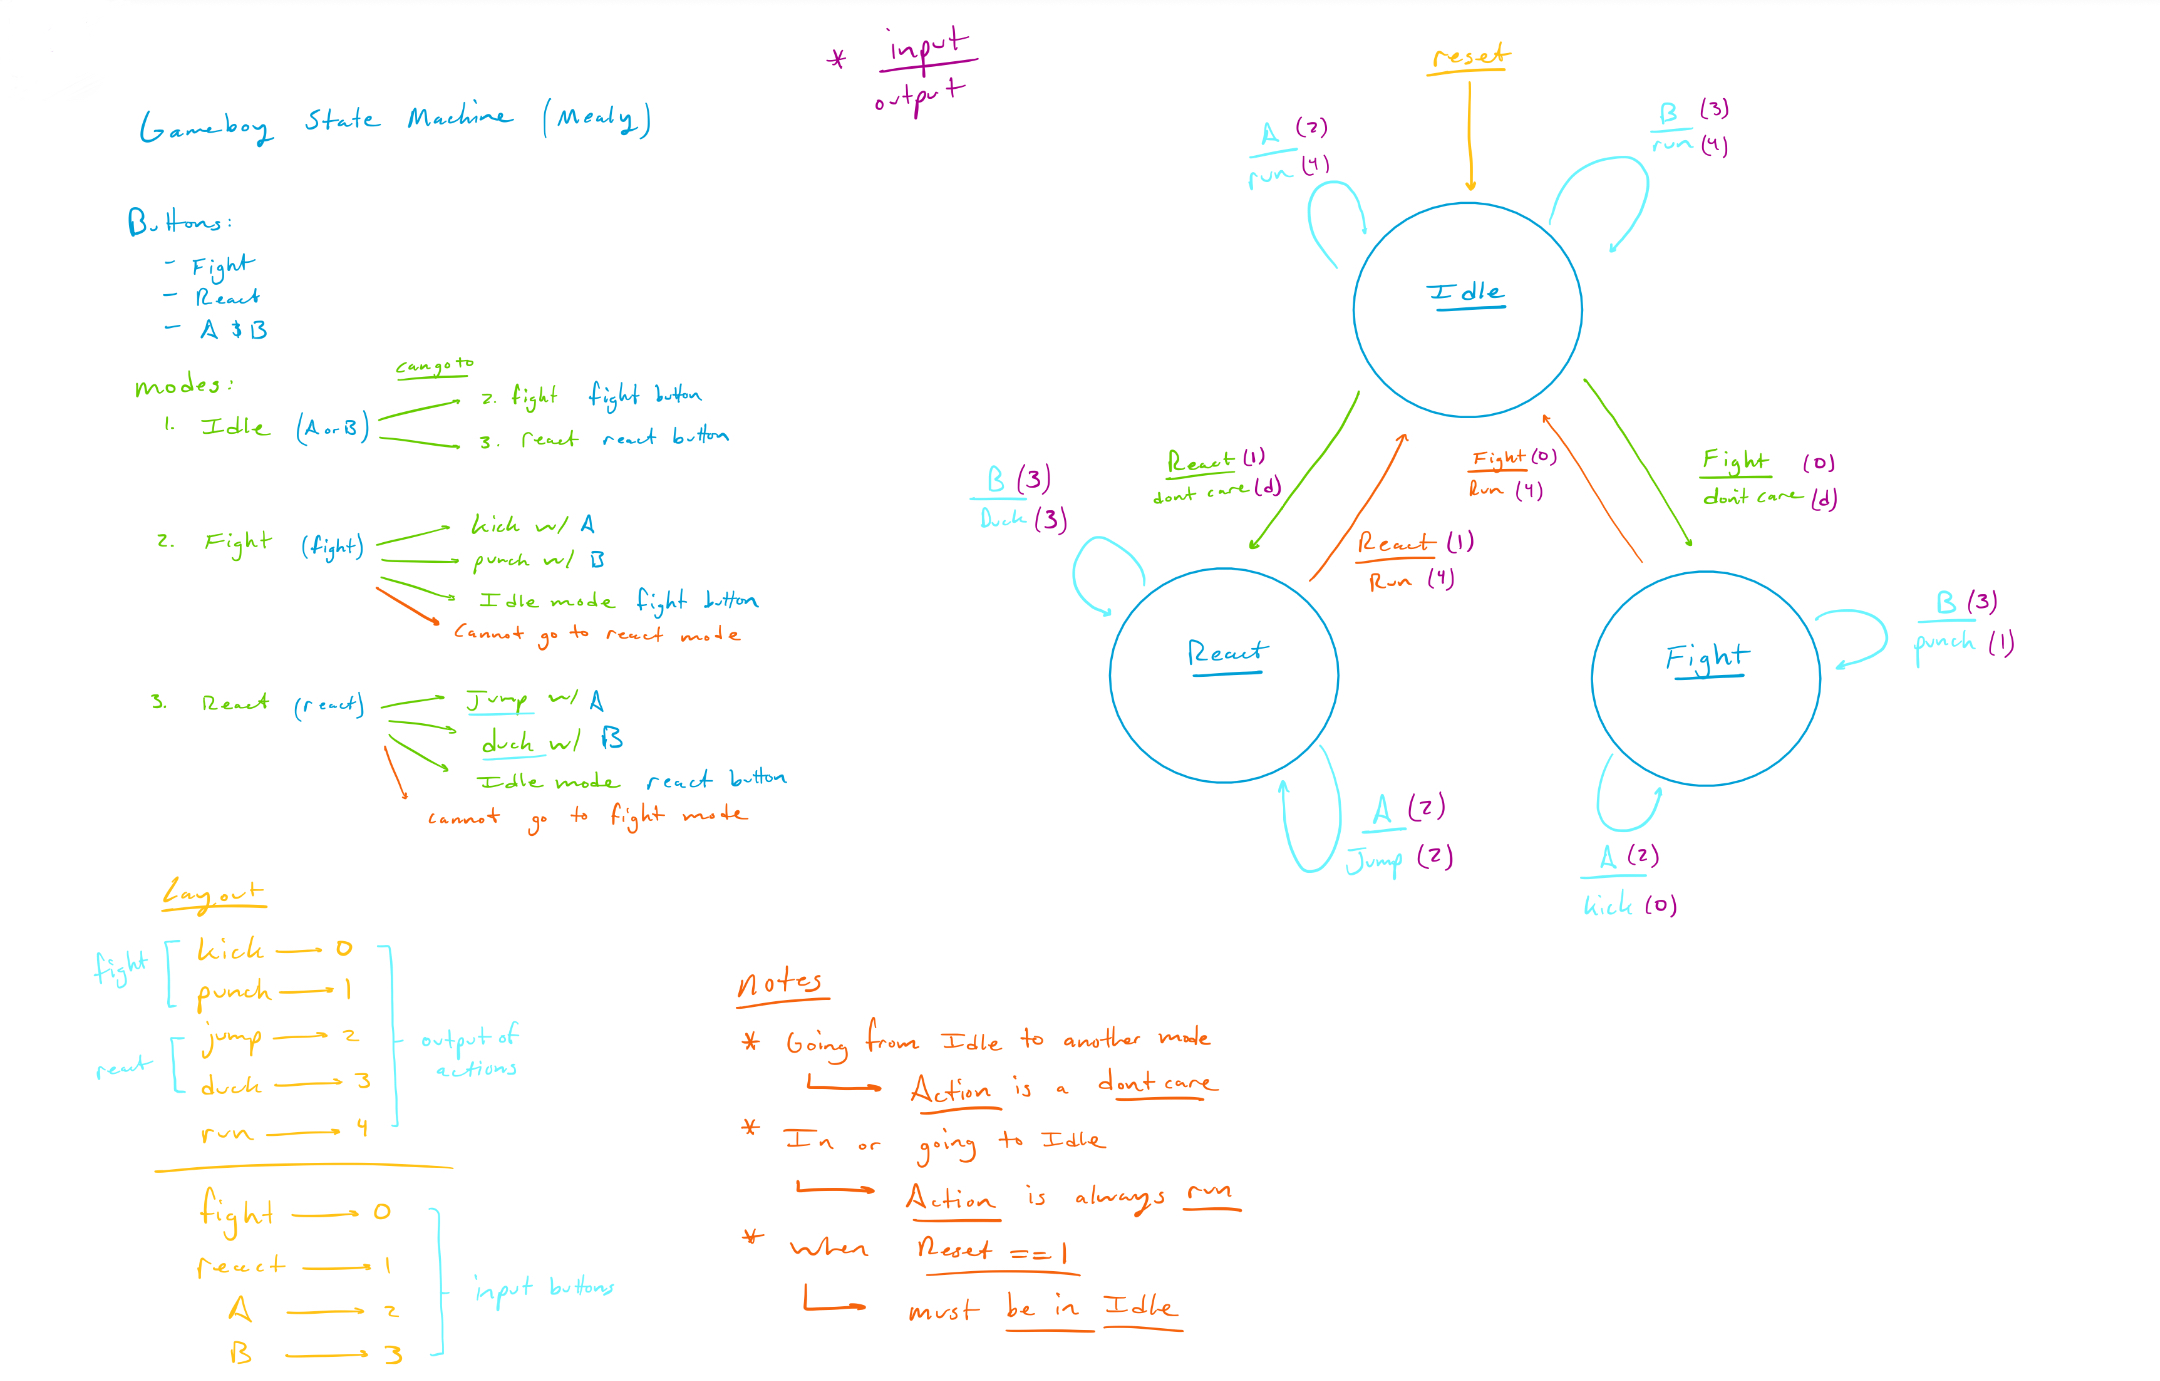 Gameboy State Machine (Mealy)
* input
output
Buttons:
- Fight
- React
- A $ B
modes:
can go to
1. Idle (A or B)
2. fight fight button
3. react react button
2. Fight (fight)
kick w/ A
punch w/ B
Idle mode fight button
Cannot go to react mode
3. React (react)
Jump w/ A
duck w/ B
Idle mode react button
cannot go to fight mode
Layout
fight
kick → 0
punch → 1
react
jump → 2
duck → 3
run → 4
output of
actions
fight → 0
react → 1
A → 2
B → 3
input buttons
reset
A (2)
run (4)
B (3)
run (4)
Idle
React (1)
dont care (d)
Fight (0)
Run (4)
Fight (0)
don't care (d)
React (1)
Run (4)
B (3)
Duck (3)
React
A (2)
Jump (2)
Fight
B (3)
punch (1)
A (2)
kick (0)
notes
* Going from Idle to another mode
Action is a dont care
* In or going to Idle
Action is always run
* when Reset == 1
must be in Idle